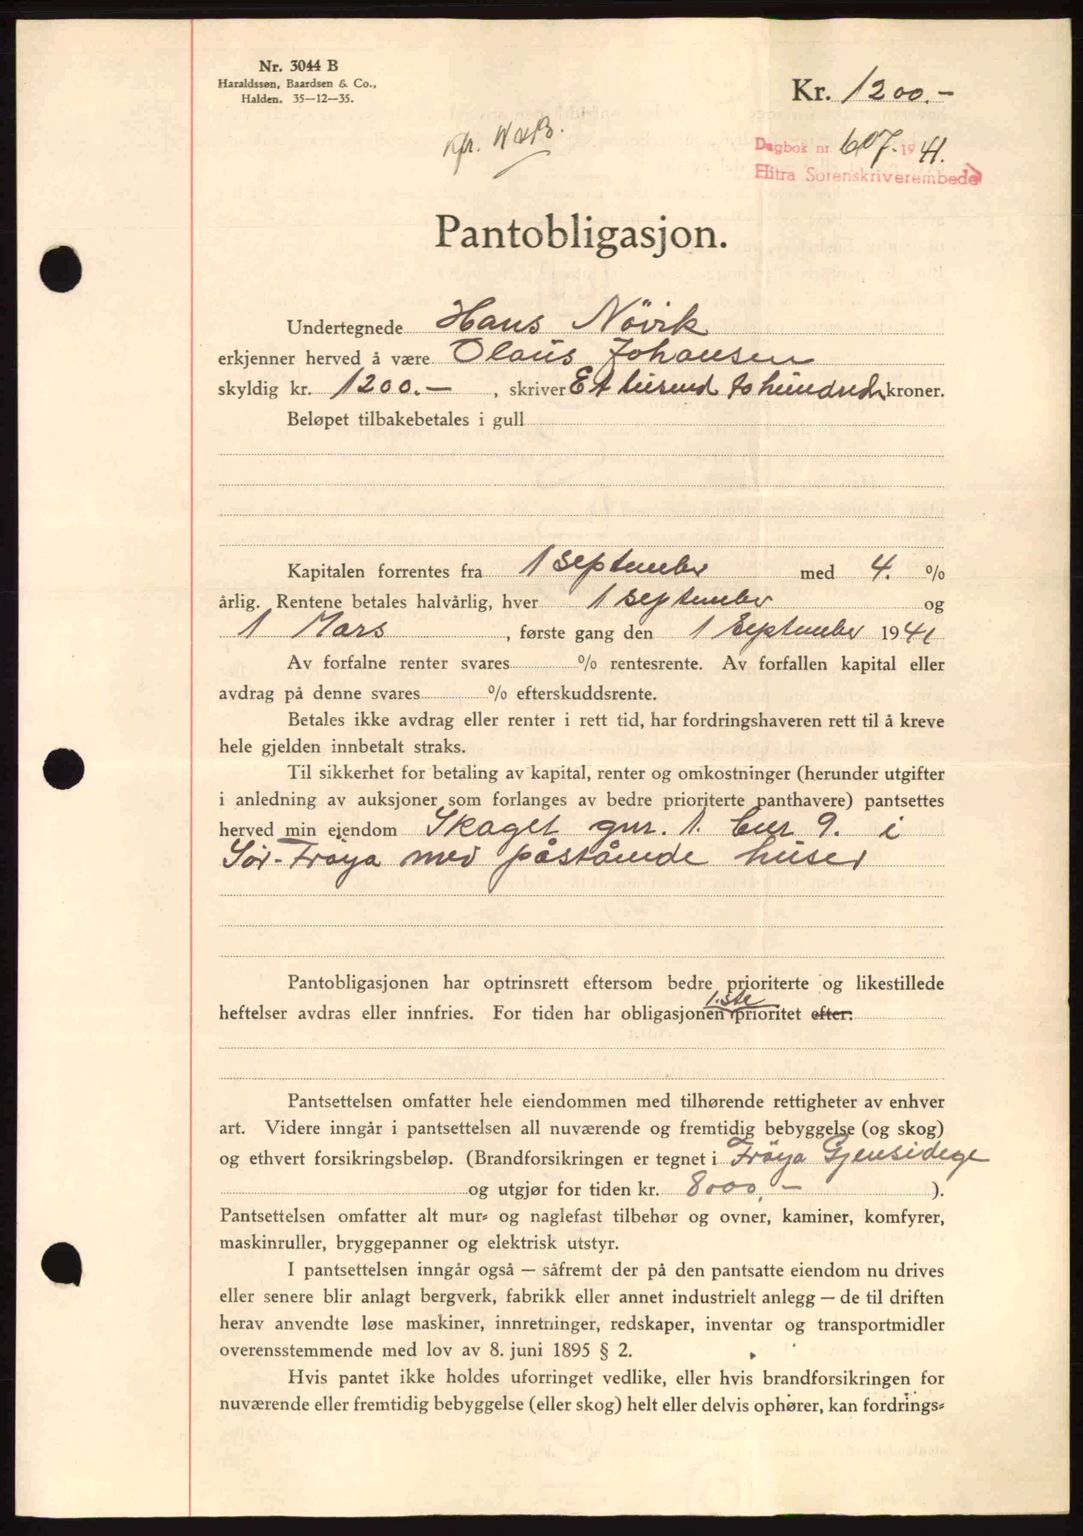 Nr. 3044 B
Haraldssøn, Baardsen & Co.,
Halden. 35—12—35.
Kr. 1200.-
Dagbok nr. 607. 1941.
Hitra Sorenskriverembede
Pantobligasjon.
Undertegnede Hans Növik
erkjenner herved å være Olaus Johansen
skyldig kr. 1200.— , skriver Et tusend to hundrede kroner.
Beløpet tilbakebetales i gull
Kapitalen forrentes fra 1 september med 4. %
årlig. Rentene betales halvårlig, hver 1 september og
1 Mars , første gang den 1 September 1941
Av forfalne renter svares % rentesrente. Av forfallen kapital eller
avdrag på denne svares % efterskuddsrente.
Betales ikke avdrag eller renter i rett tid, har fordringshaveren rett til å kreve
hele gjelden innbetalt straks.
Til sikkerhet for betaling av kapital, renter og omkostninger (herunder utgifter
i anledning av auksjoner som forlanges av bedre prioriterte panthavere) pantsettes
herved min eiendom Skaget gnr. 1. bnr 9. i
Sör-Fröya med påstående huser
Pantobligasjonen har optrinsrett eftersom bedre prioriterte og likestillede
heftelser avdras eller innfries. For tiden har obligasjonen 1.ste prioritet efter:
Pantsettelsen omfatter hele eiendommen med tilhørende rettigheter av enhver
art. Videre inngår i pantsettelsen all nuværende og fremtidig bebyggelse (og skog)
og ethvert forsikringsbeløp. (Brandforsikringen er tegnet i Fröya Gjensidege
og utgjør for tiden kr. 8000,— ).
Pantsettelsen omfatter alt mur- og naglefast tilbehør og ovner, kaminer, komfyrer,
maskinruller, bryggepanner og elektrisk utstyr.
I pantsettelsen inngår også — såfremt der på den pantsatte eiendom nu drives
eller senere blir anlagt bergverk, fabrikk eller annet industrielt anlegg — de til driften
herav anvendte løse maskiner, innretninger, redskaper, inventar og transportmidler
overensstemmende med lov av 8. juni 1895 § 2.
Hvis pantet ikke holdes uforringet vedlike, eller hvis brandforsikringen for
nuværende eller fremtidig bebyggelse (eller skog) helt eller delvis ophører, kan fordrings-